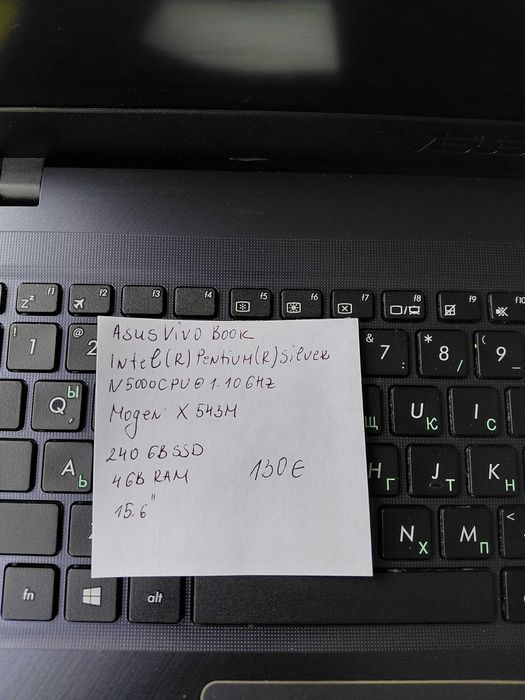 ASUS
z^z f1
f2
f3
f4
f5
f6
f7
f8
f9
f10
! 1
@ 2
& 7
* 8 /
( 9
Q Ы
Щ
U К
I С
A Ь
H Г
J Т
K Н
N Х
M П
<
fn
alt
ASUS VIVO BOOK
Intel(R) Pentium(R) Silver
N5000 CPU @ 1.10 GHz
Модел: X 543M
240 GB SSD
4GB RAM 130€
15.6"